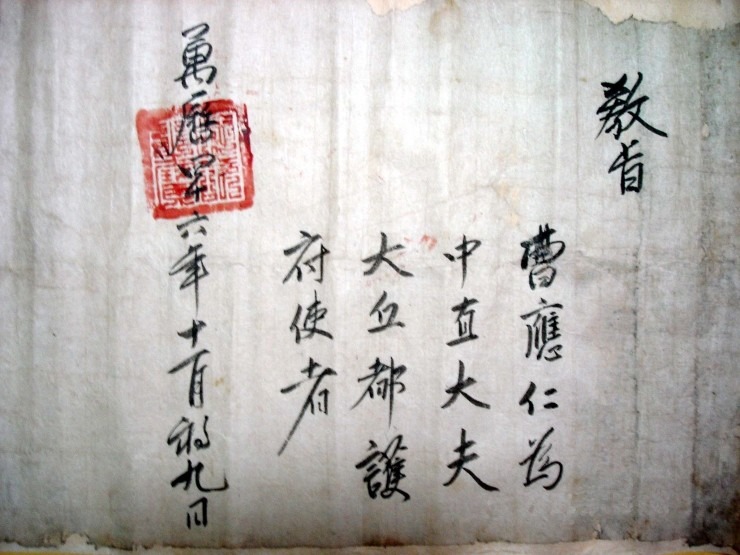 敎旨
曹應仁爲
中直大夫
大丘都護
府使者
萬曆四十六年十一月初九日